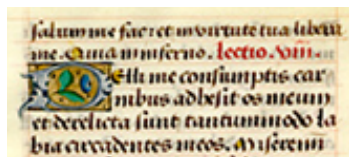 salum me fac: et in virtute tua libera
me. Quia in inferno. lectio. viii.
Pelli mee consumptis car
nibus adhesit os meum
et derelicta sunt tantummodo la
bia circa dentes meos. Miseremi